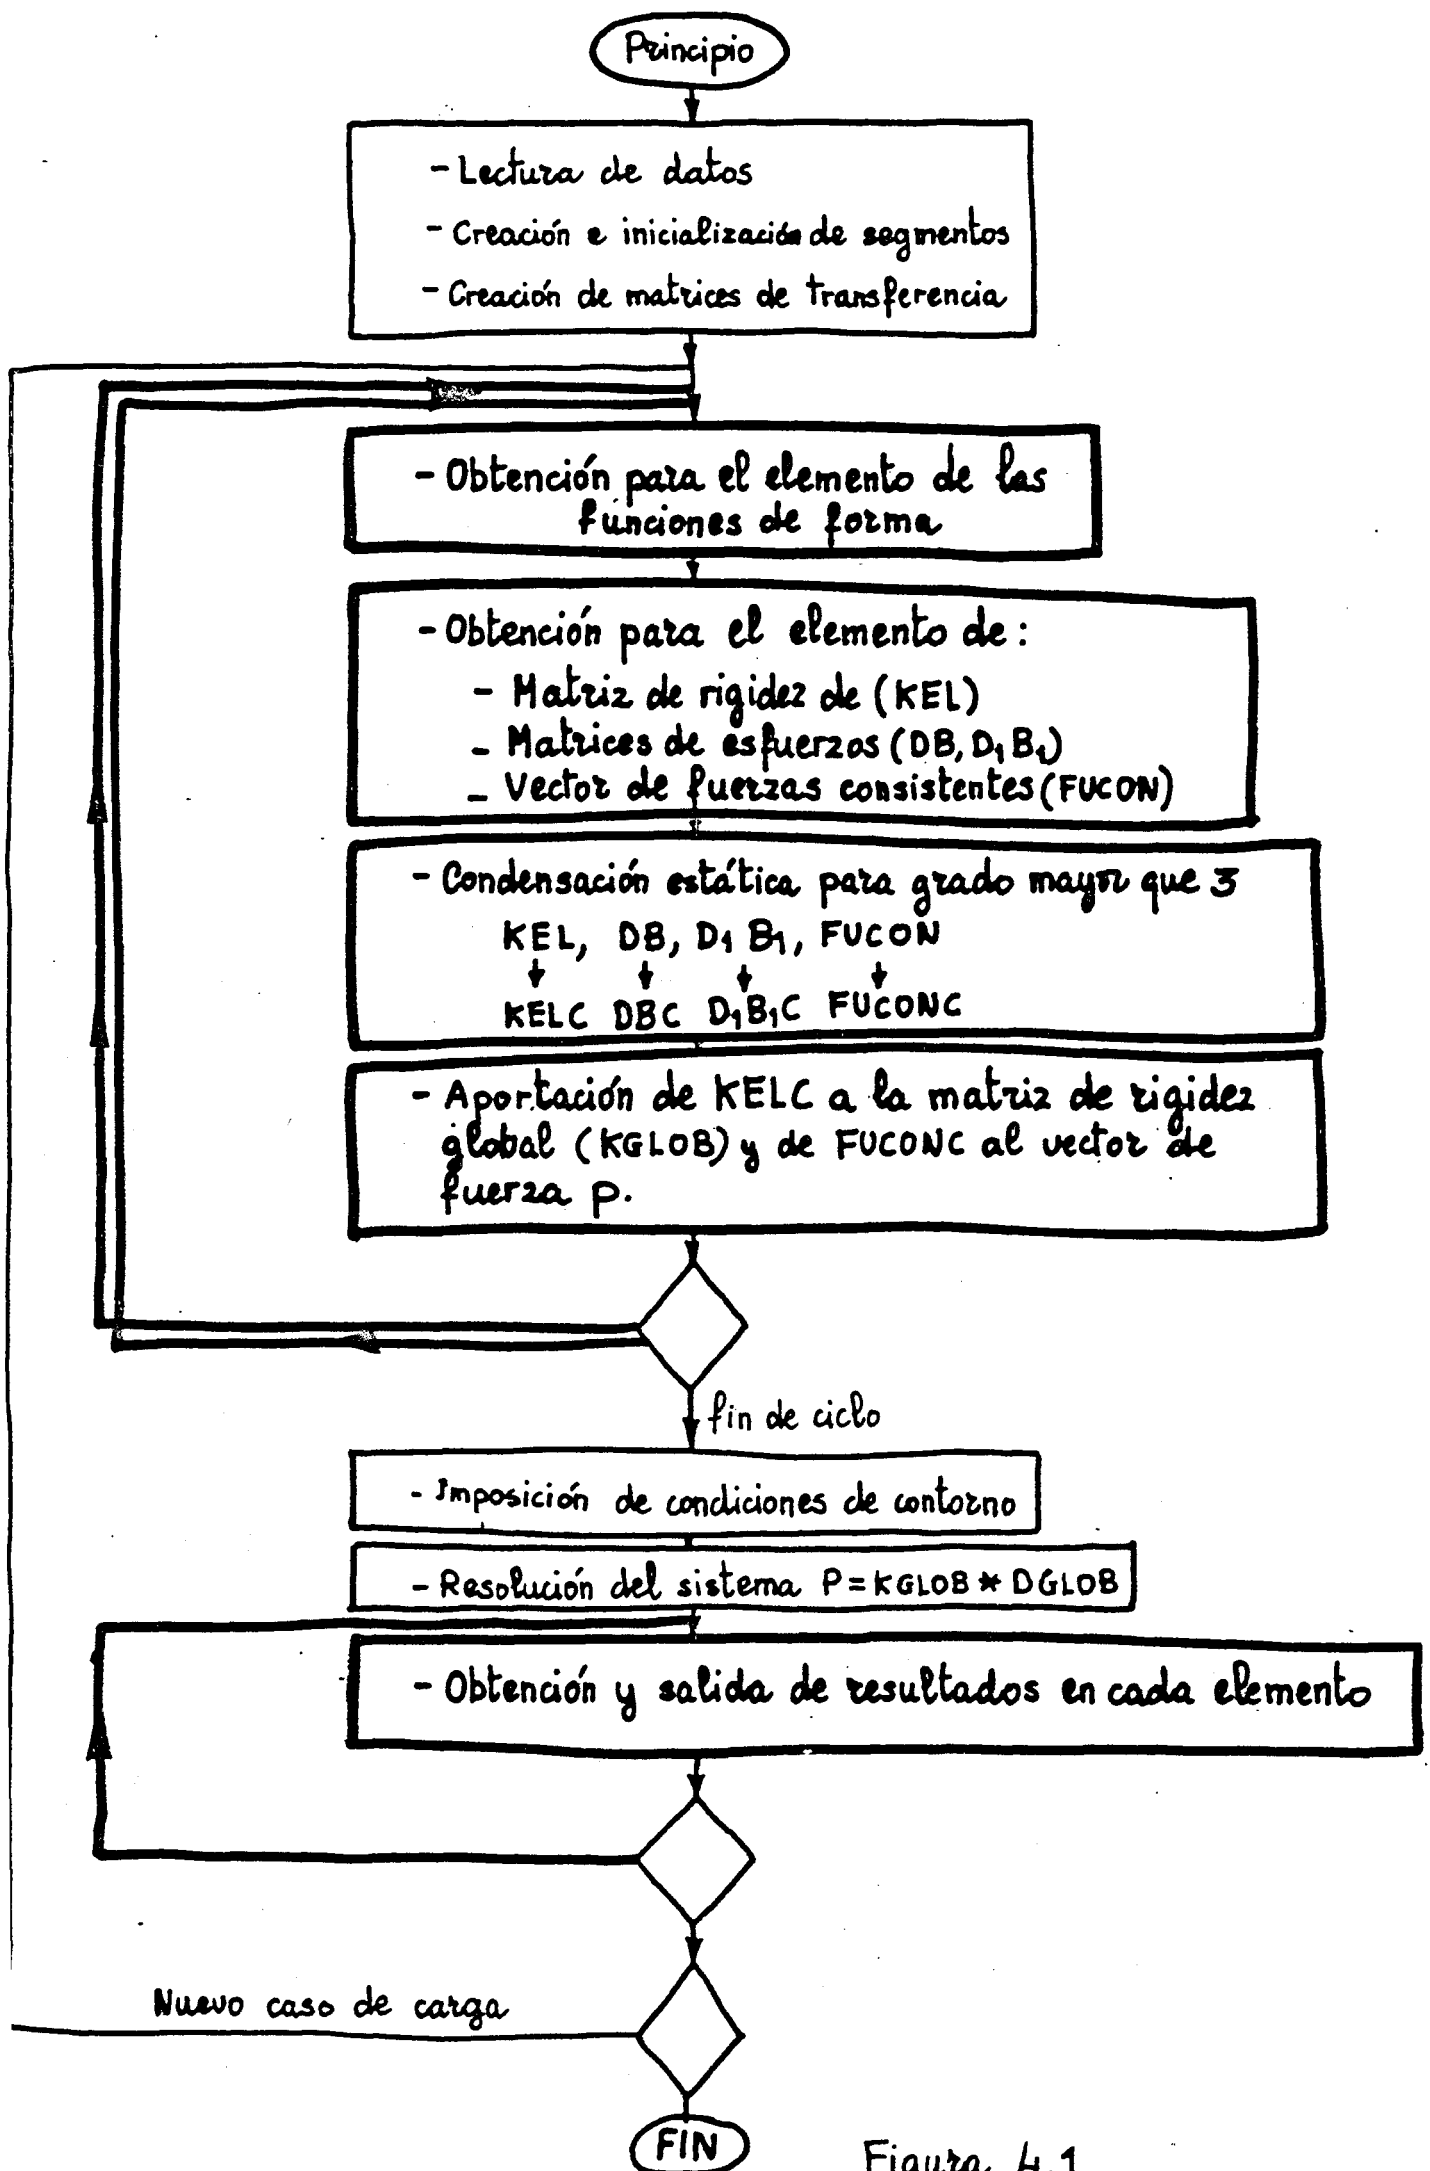 Principio
- Lectura de datos
- Creación e inicialización de segmentos
- Creación de matrices de transferencia
- Obtención para el elemento de las
funciones de forma
- Obtención para el elemento de:
- Matriz de rigidez de (KEL)
- Matrices de esfuerzos (DB, D₁ B₁)
- Vector de fuerzas consistentes (FUCON)
- Condensación estática para grado mayor que 3
KEL, DB, D₁ B₁, FUCON
KELC DBC D₁B₁C FUCONC
- Aportación de KELC a la matriz de rigidez
global (KGLOB) y de FUCONC al vector de
fuerza P.
fin de ciclo
- Imposición de condiciones de contorno
- Resolución del sistema P = KGLOB * DGLOB
- Obtención y salida de resultados en cada elemento
Nuevo caso de carga
FIN
Figura 4.1